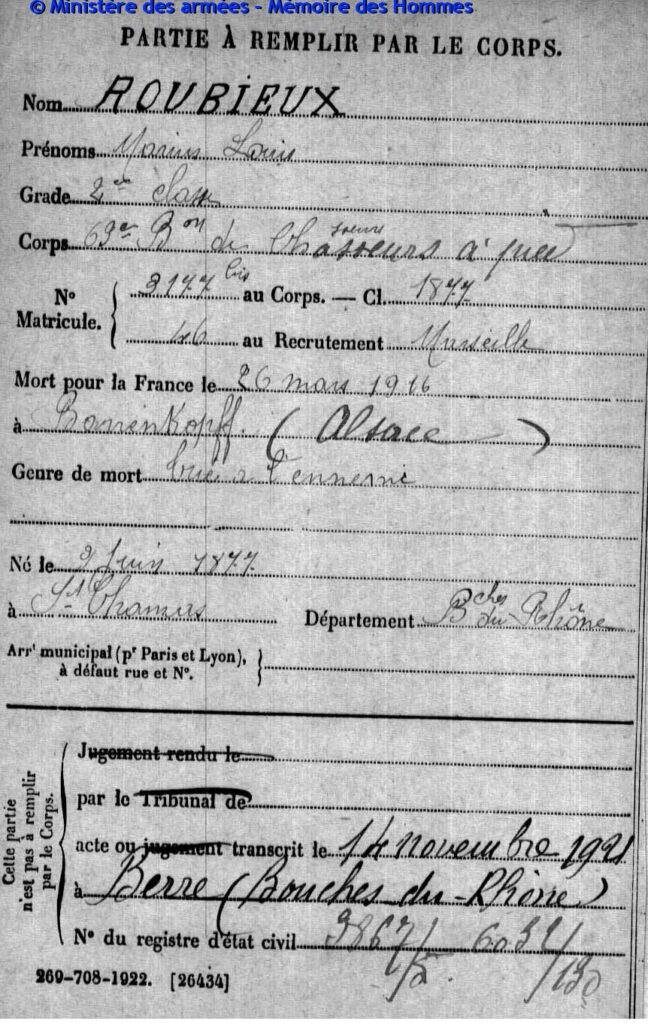 © Ministère des armées - Mémoire des Hommes
PARTIE À REMPLIR PAR LE CORPS.
Nom ROUBIEUX
Prénoms Marius Louis
Grade 2e classe
Corps 63e Bon de Chasseurs à pied
No Matricule. { 3177 bis au Corps. — Cl. 1877
46 au Recrutement Marseille
Mort pour la France le 26 mars 1916
à (Alsace)
Genre de mort tué à l'ennemi
Né le 2 Juin 1877
à St Chamas Département Bches du-Rhône
Arrt municipal (pr Paris et Lyon),
à défaut rue et No.
Cette partie n'est pas à remplir par le Corps.
Jugement rendu le
par le Tribunal de
acte ou jugement transcrit le 14 novembre 1921
à Berre (Bouches du-Rhône)
No du registre d'état civil
269-708-1922. [26434]